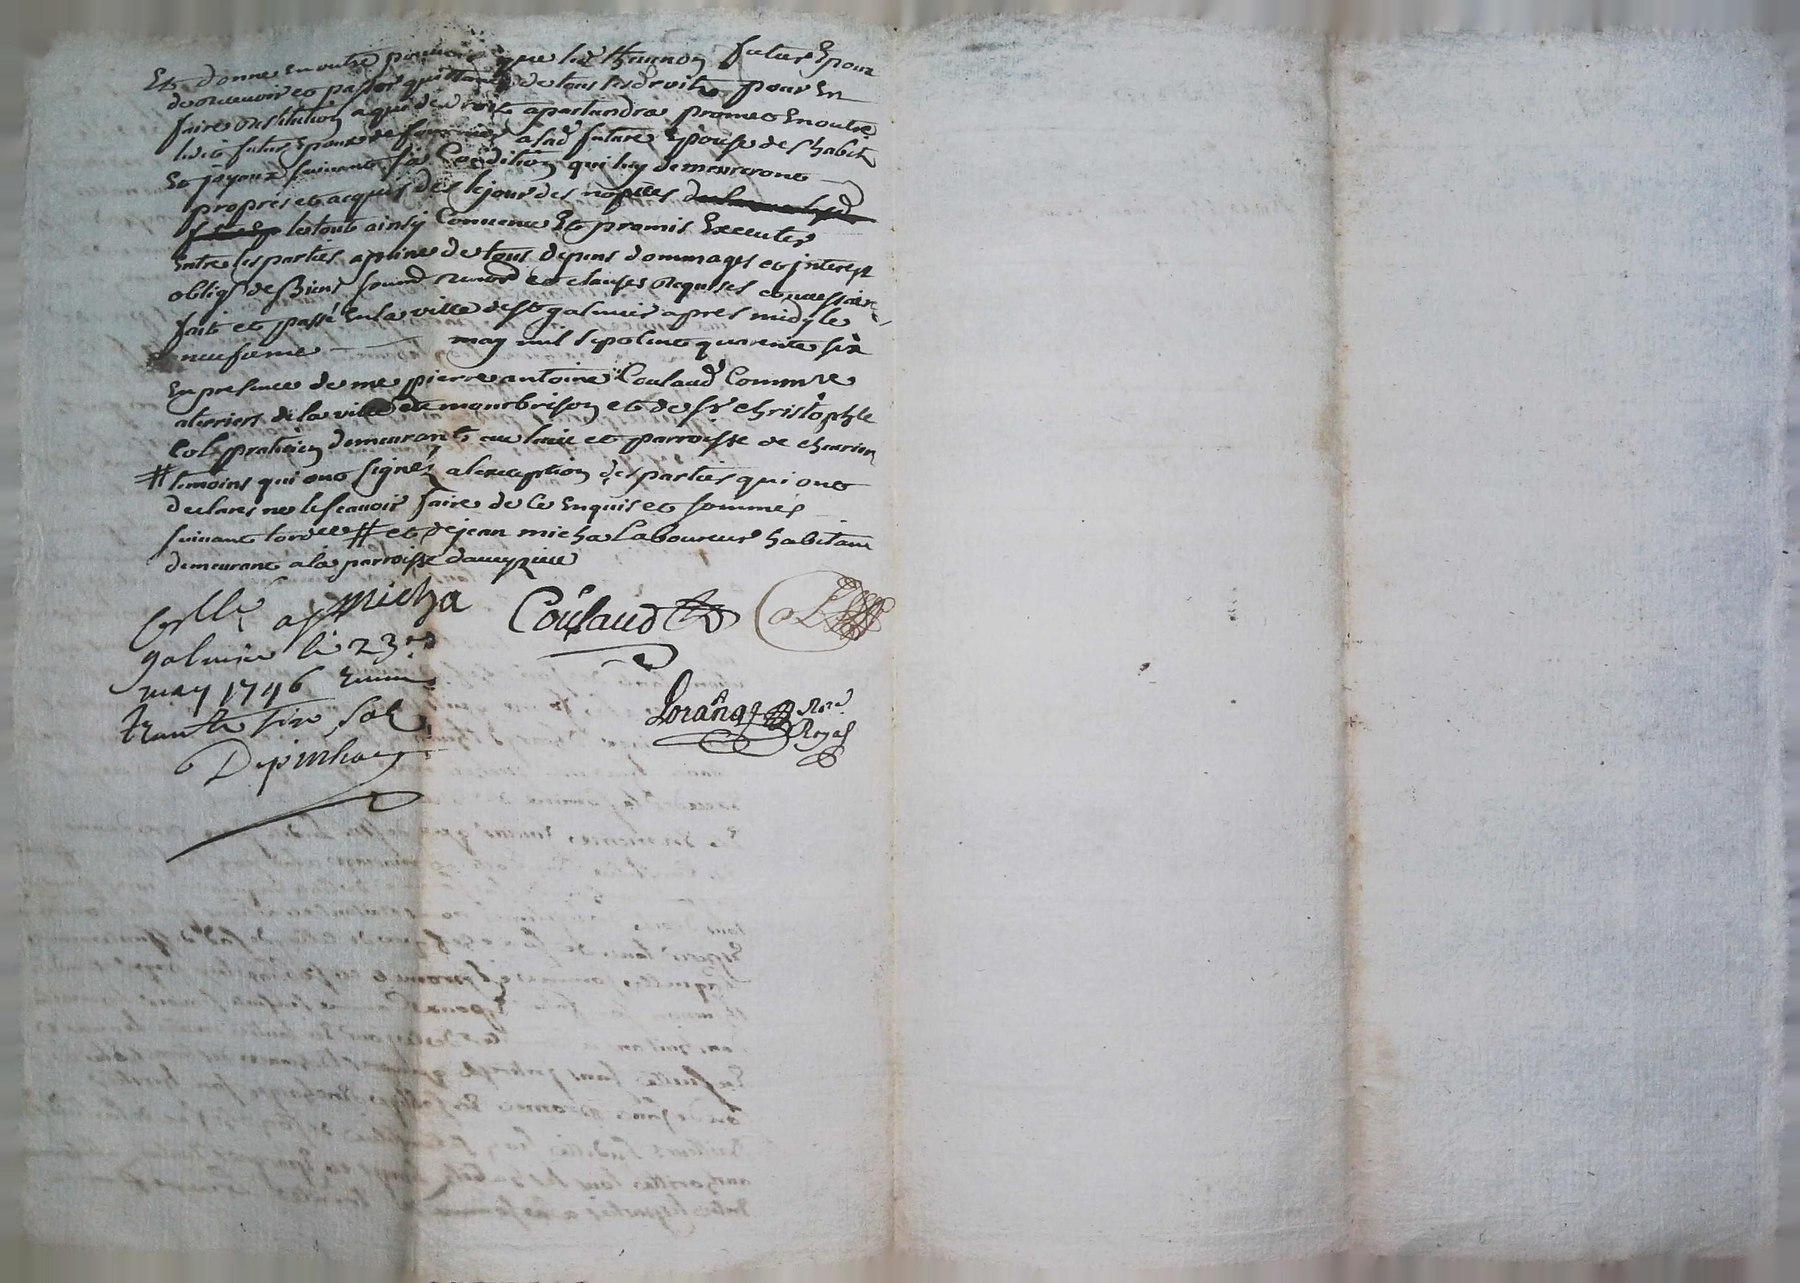 Et donne en outre pouvoir que led Thiennon futur Epoux
de recevoir et passer quittance de tous lesd droits pour En
faire restitution a qui de droit apartiendra promet En outre
ledit futur Epoux de fournir a lad future Epouse des habit
Et joyaux suivant sa Condition qui luy demeureront
propres et acquis des le jour des nopces
le tout ainsy Convenu Et promis Executer
Entre les parties a peine de tous depens dommages et interest
oblign de Biens soumd renond et clauses requises
fait et passé En la ville de St galmier apres midy le
neufieme may mil sept cent quarente six
En presence de me pierre antoine Coulaud Commre
a terriers de la ville de montbrison et de sr christophle
Col praticien demeurant au lieu et parroisse de
# temoins qui ont signés a lexception des parties qui ont
declarés ne le scavoir faire de Ce Enquis et sommés
suivant lordce # et de jean micha Laboureur habitant
demeurant a la parroisse daveyzieu
micha Coulaud Col
Collé a St
galmier le 23
may 1746
trante six sols
Lorange Nore
Royal